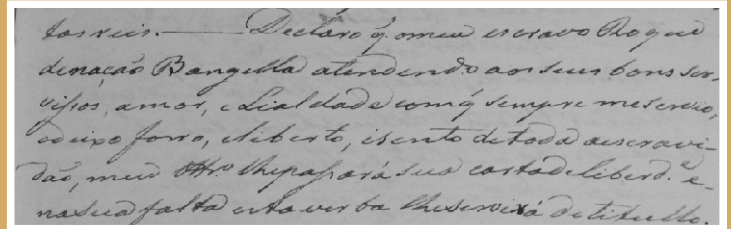 tos reis. —— Declaro q. o meu escravo Roque
de nação Bangella atendendo aos seus bons ser-
vissos, amor, e Lialdade com q sempre me servio,
o deixo forro, e liberto, isento de toda a escravi-
dão, meu Ttro. lhe passará sua carta de liberd.e e-
na sua falta esta verba lhe servirá de titullo.